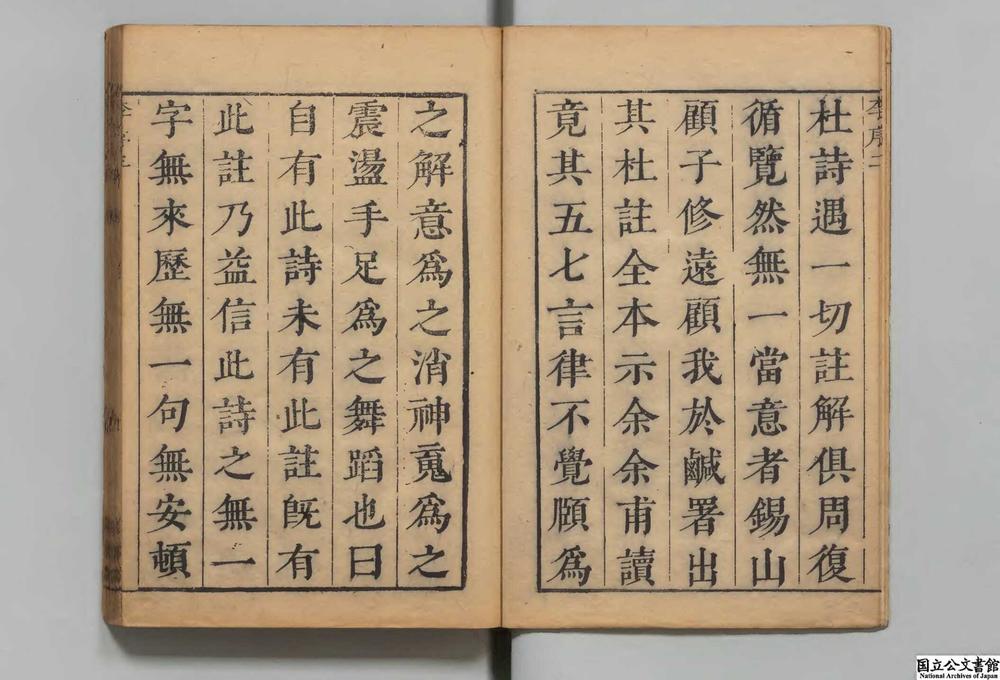 李序二
杜詩遇一切註解俱周復
循覽然無一當意者錫山
顧子修遠顧我於鹹署出
其杜註全本示余余甫讀
竟其五七言律不覺頤爲
之解意爲之消神䰟爲之
震盪手足爲之舞蹈也曰
自有此詩未有此註旣有
此註乃益信此詩之無一
字無來歷無一句無安頓
国立公文書館
National Archives of Japan